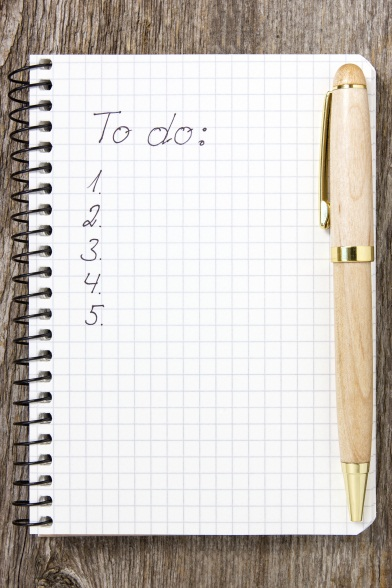 To do:
1.
2.
3.
4.
5.